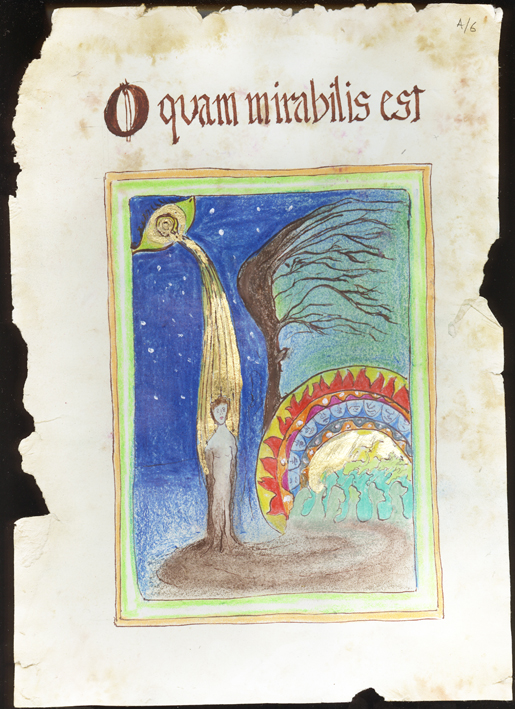 A/6
O quam mirabilis est